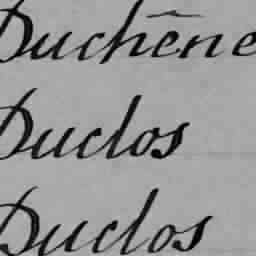 Duchêne
Duclos
Duclos